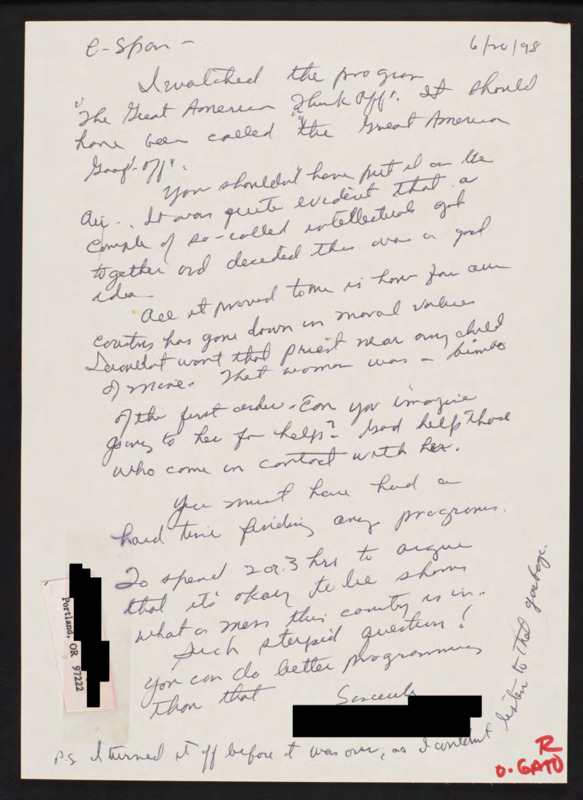 C-Span - 6/20/98
I watched the program
"The Great American Think Off". It should
have been called "the Great American
Goof-off".
You shouldn't have put it on the
air. It was quite evident that a
couple of so-called intellectuals got
together and decided this was a good
idea.
All it proved to me is how far our
country has gone down in moral values
I wouldn't want that priest near any child
of mine. That woman was a bimbo
of the first order. Can you imagine
going to her for help? God help those
who come in contact with her.
You must have had a
hard time finding any programs.
To spend 2 or 3 hrs to argue
that it's okay to lie shows
what a mess this country is in.
Such stupid question!
you can do better programming
than that
Sincerely
P.S I turned it off before it was over, as I couldn't
listen to that garbage.
Portland, OR 97222
R
O. GATO